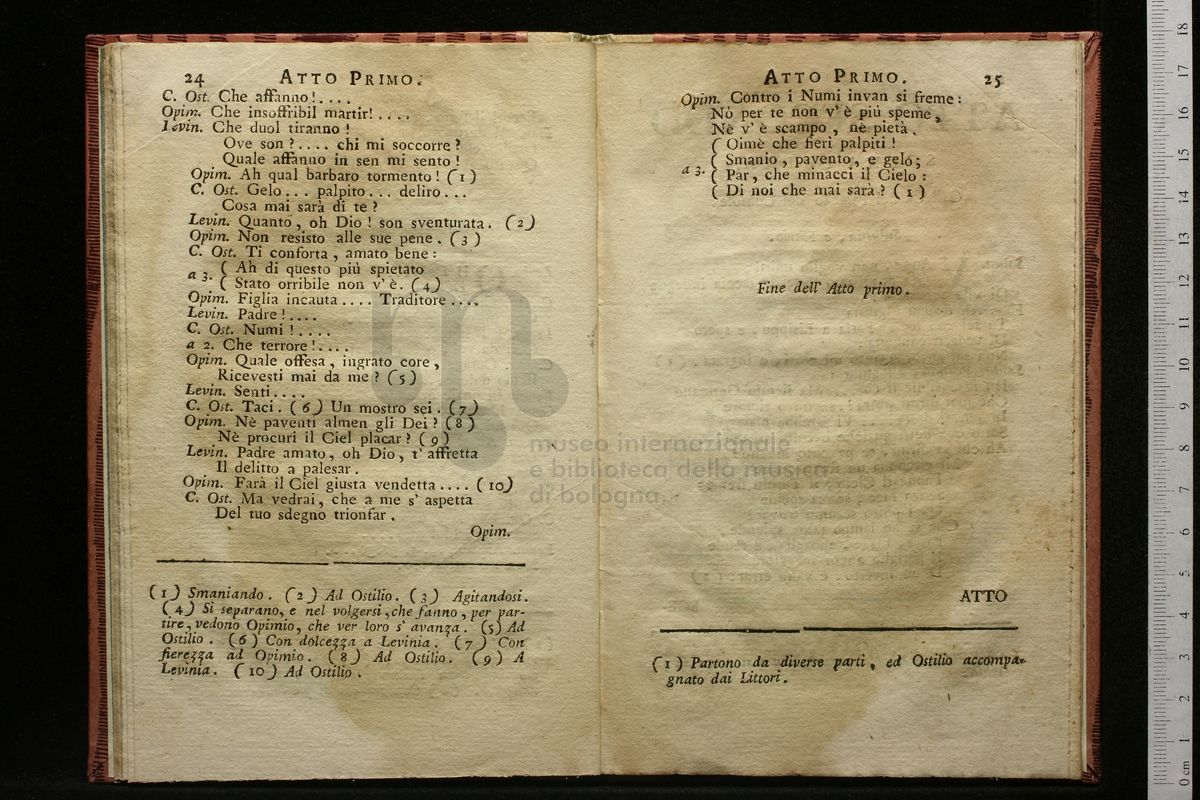 24 ATTO PRIMO.
C. Ost. Che affanno!....
Opim. Che insoffribil martir!....
Levin. Che duol tiranno!
Ove son?.... chi mi soccorre?
Quale affanno in sen mi sento!
Opim. Ah qual barbaro tormento! (1)
C. Ost. Gelo... palpito... deliro...
Cosa mai sarà di te?
Levin. Quanto, oh Dio! son sventurata. (2)
Opim. Non resisto alle sue pene. (3)
C. Ost. Ti conforta, amato bene:
a 3. ( Ah di questo più spietato
( Stato orribile non v'è. (4)
Opim. Figlia incauta.... Traditore....
Levin. Padre!....
C. Ost. Numi!....
a 2. Che terrore!....
Opim. Quale offesa, ingrato core,
Ricevesti mai da me? (5)
Levin. Senti....
C. Ost. Taci. (6) Un mostro sei. (7)
Opim. Nè paventi almen gli Dei? (8)
Nè procuri il Ciel placar? (9)
Levin. Padre amato, oh Dio, t'affretta
Il delitto a palesar.
Opim. Farà il Ciel giusta vendetta.... (10)
C. Ost. Ma vedrai, che a me s'aspetta
Del tuo sdegno trionfar.
Opim.
(1) Smaniando. (2) Ad Ostilio. (3) Agitandosi.
(4) Si separano, e nel volgersi, che fanno, per par-
tire, vedono Opimio, che ver loro s'avanza. (5) Ad
Ostilio. (6) Con dolcezza a Levinia. (7) Con
fierezza ad Opimio. (8) Ad Ostilio. (9) A
Levinia. (10) Ad Ostilio.
ATTO PRIMO. 25
Opim. Contro i Numi invan si freme:
Nò per te non v'è più speme,
Nè v'è scampo, nè pietà.
( Oimè che fieri palpiti!
( Smanio, pavento, e gelo;
a 3. ( Par, che minacci il Cielo:
( Di noi che mai sarà? (1)
Fine dell' Atto primo.
ATTO
(1) Partono da diverse parti, ed Ostilio accompa-
gnato dai Littori.
museo internazionale
e biblioteca della musica
di bologna
0 cm 1 2 3 4 5 6 7 8 9 10 11 12 13 14 15 16 17 18